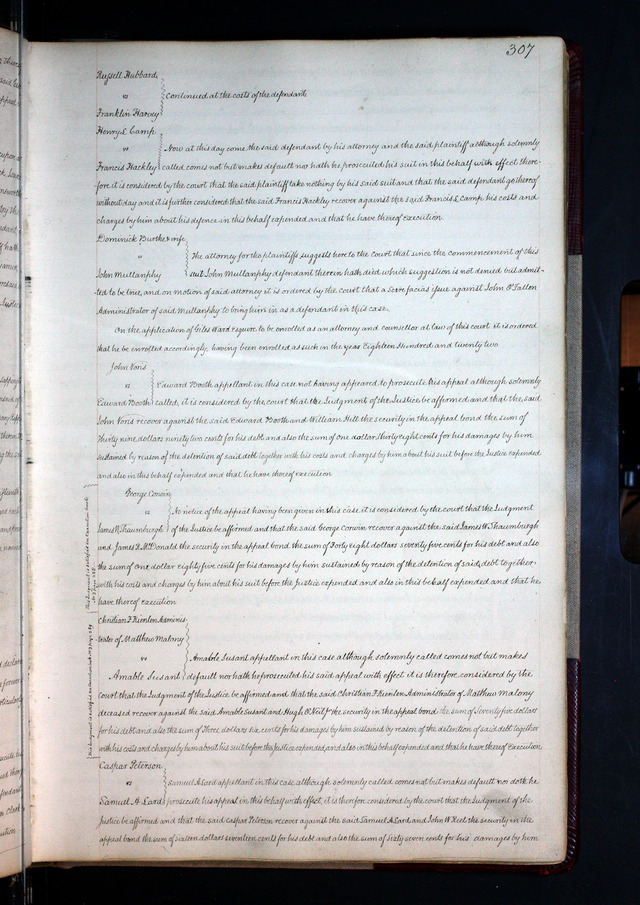 307
Russell Hubbard
vs Continued at the costs of the defendant
Franklin Harvey
Henry L Camp
vs Now at this day come the said defendant by his attorney and the said plaintiff although solemnly
Francis Hackley called comes not but makes default nor hath he prosecuted his suit in this behalf with effect there-
fore it is considered by the court that the said plaintiff take nothing by his said suit and that the said defendant go thereof
without day and it is further considered that the said Francis Hackley recover against the said Francis L Camp his costs and
charges by him about his defence in this behalf expended and that he have thereof execution
Dominick Burthe & wife
vs The attorney for the plaintiffs suggests here to the court that since the commencement of this
John Mullanphy suit John Mullanphy defendant therein hath died, which suggestion is not denied but admit-
ted to be true, and on motion of said attorney it is ordered by the court that a Scire facias issue against John O'Fallon
Administrator of said Mullanphy to bring him in as a defendant in this case.
On the application of Giles Ward Esquire to be enrolled as an attorney and counsellor at law of this court it is ordered
that he be enrolled accordingly, having been enrolled as such in the year Eighteen Hundred and twenty two
John Voris
vs Edward Booth appellant in this case not having appeared to prosecute his appeal although solemnly
Edward Booth called, it is considered by the court that the Judgment of the Justice be affirmed and that the said
John Voris recover against the said Edward Booth and William Hill the security in the appeal bond the sum of
Thirty nine dollars ninety two cents for his debt and also the sum of one dollar thirty eight cents for his damages by him
sustained by reason of the detention of said debt together with his costs and charges by him about his suit before the Justice expended
and also in this behalf expended and that he have thereof execution
George Corwin
vs No notice of the appeal having been given in this case it is considered by the court that the Judgment
James W Thaumburgh of the Justice be affirmed and that the said George Corwin recover against the said James W Thaumburgh
and James R McDonald the security in the appeal bond the sum of Forty eight dollars seventy five cents for his debt and also
the sum of one dollar eighty five cents for his damages by him sustained by reason of the detention of said debt together
with his costs and charges by him about his suit before the Justice expended and also in this behalf expended and that he
have thereof execution
Christian F Rienlen Adminis
trator of Matthew Malony
vs Amable Susant appellant in this case although solemnly called comes not but makes
Amable Susant default nor hath he prosecuted his said appeal with effect it is therefore considered by the
court that the Judgment of the Justice be affirmed and that the said Christian F Rienlen Administrator of Matthew Malony
deceased recover against the said Amable Susant and Hugh O'Neil Jr the security in the appeal bond the sum of Seventy five dollars
for his debt and also the sum of Three dollars six cents for his damages by him sustained by reason of the detention of said debt together
with his costs and charges by him about his suit before the Justice expended, and also in this behalf expended and that he have thereof Execution
Caspar Peterson
vs Samuel A Lard appellant in this case although solemnly called comes not but makes default nor doth he
Samuel A Lard prosecute his appeal in this behalf with effect, it is therefore considered by the court that the Judgment of the
Justice be affirmed and that the said Caspar Peterson recover against the said Samuel A Lard and John W Reel the security in the
appeal bond the sum of sixteen dollars seventeen cents for his debt and also the sum of sixty seven cents for his damages by him